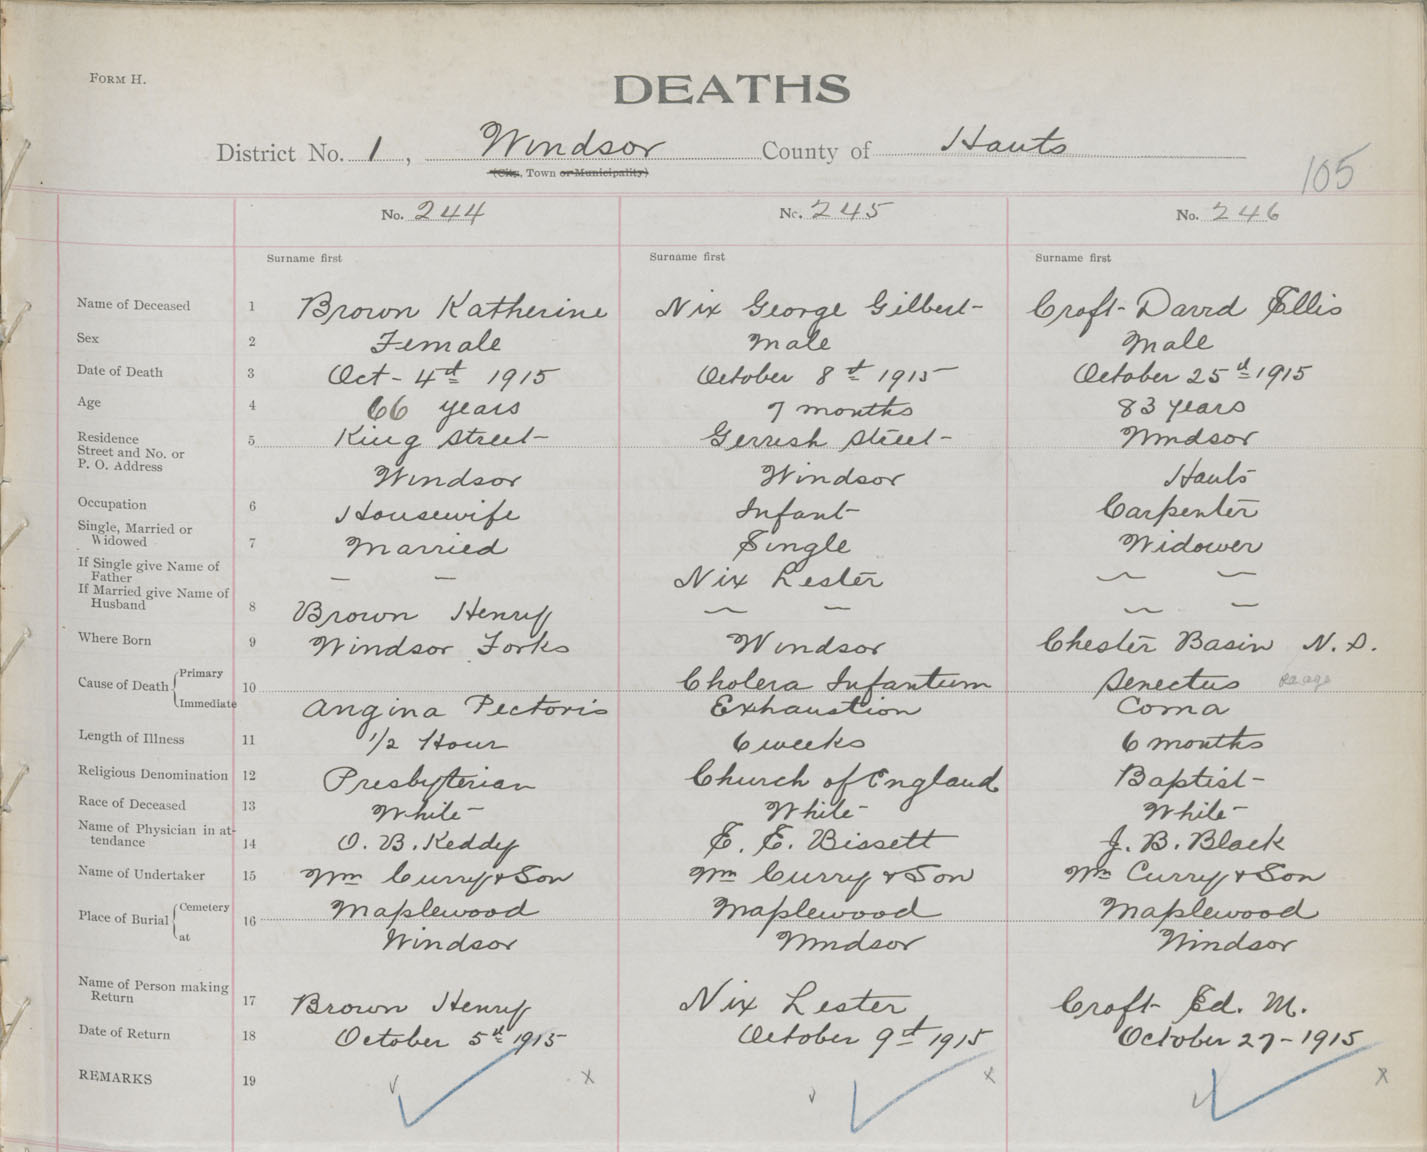 FORM H.
DEATHS
District No. 1, Windsor County of Hants
(City, Town or Municipality)
105
No. 244 No. 245 No. 246
Surname first Surname first Surname first
Name of Deceased 1 Brown Katherine Nix George Gilbert Croft David Ellis
Sex 2 Female Male Male
Date of Death 3 Oct - 4th 1915 October 8th 1915 October 25th 1915
Age 4 66 years 7 months 83 years
Residence 5 King Street Gerrish Street Windsor
Street and No. or
P. O. Address Windsor Windsor Hants
Occupation 6 Housewife Infant Carpenter
Single, Married or
Widowed 7 Married Single Widower
If Single give Name of
Father — — Nix Lester — —
If Married give Name of
Husband 8 Brown Henry — — — —
Where Born 9 Windsor Forks Windsor Chester Basin N.S.
Cause of Death Primary 10 Cholera Infantum Senectus
Immediate Angina Pectoris Exhaustion Coma
Length of Illness 11 1/2 Hour 6 weeks 6 months
Religious Denomination 12 Presbyterian Church of England Baptist
Race of Deceased 13 White White White
Name of Physician in at-
tendance 14 O. B. Keddy E. E. Bissett J. B. Black
Name of Undertaker 15 Wm Curry & Son Wm Curry & Son Wm Curry & Son
Place of Burial Cemetery 16 Maplewood Maplewood Maplewood
at Windsor Windsor Windsor
Name of Person making
Return 17 Brown Henry Nix Lester Croft Ed. M.
Date of Return 18 October 5th 1915 October 9th 1915 October 27 - 1915
REMARKS 19 x x x